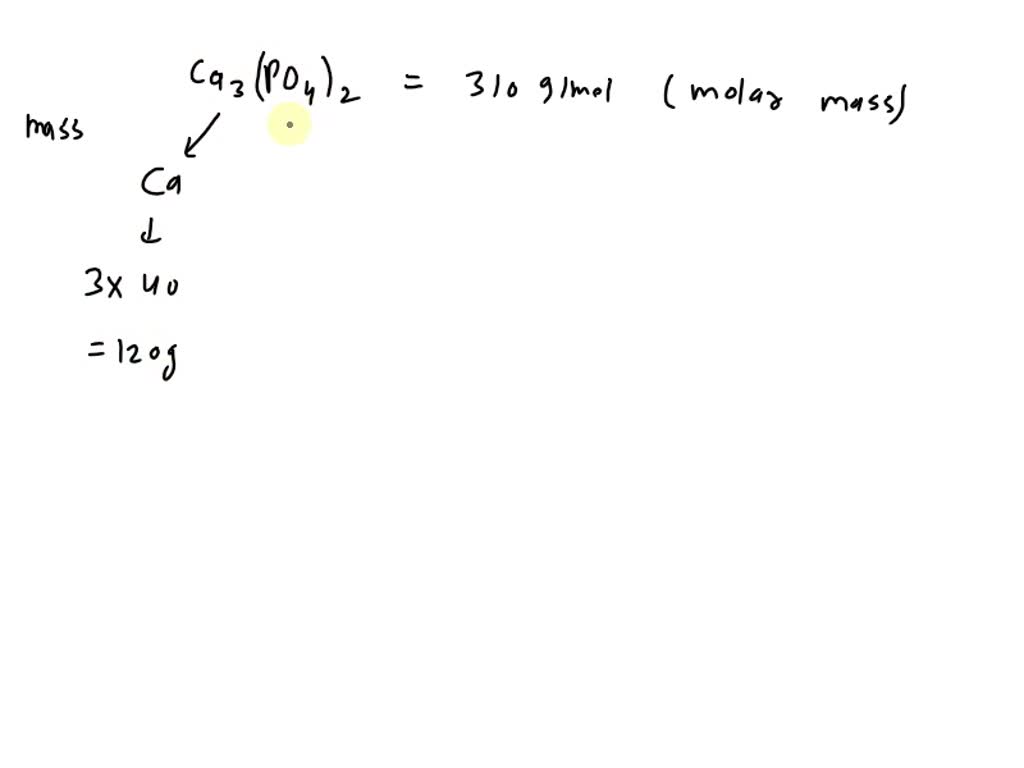 Ca₃(PO₄)₂ = 310 g/mol (molar mass)
mass
Ca
3x 40
= 120g